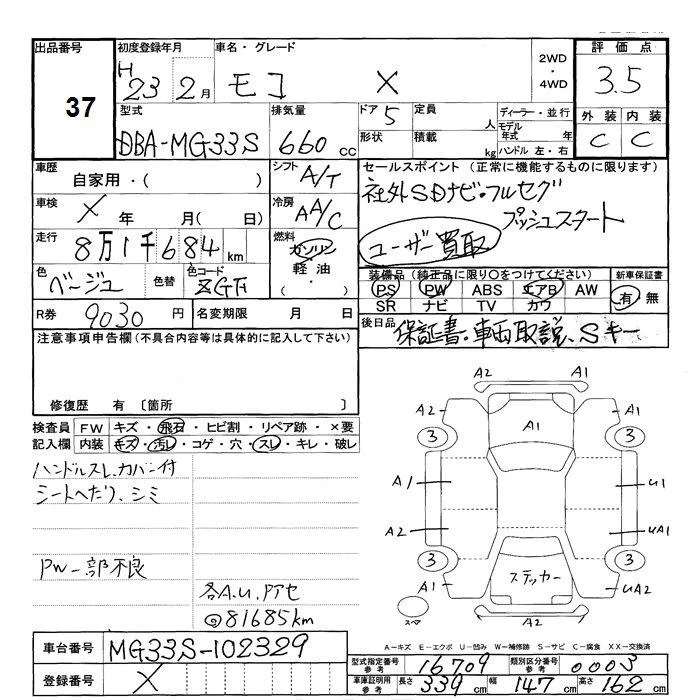 出品番号
37
初度登録年月
H 23 2月
車名・グレード
モコ X
2WD・4WD
評価点
3.5
型式
DBA-MG33S
排気量
660 cc
ドア 5
形状
定員 人
積載 kg
ディーラー・並行
モデル年式 年
ハンドル 左・右
外装 内装
C C
車歴
自家用・( )
シフト
A/T
セールスポイント (正常に機能するものに限ります)
社外SDナビ・フルセグ
プッシュスタート
ユーザー買取
車検
X 年 月( 日)
冷房
AA/C
走行
8万1千684 km
燃料
ガソリン
軽油・
( )
色
ベージュ
色替
色コード
ZGF
装備品 (純正品に限り○をつけてください)
PS PW ABS エアB AW
SR ナビ TV カワ
新車保証書
有・無
R券 9030円
名変期限 月 日
後日品
保証書・車両取説、Sキー
注意事項申告欄 (不具合内容等は具体的に記入して下さい)
修復歴 有 〔箇所 〕
検査員記入欄
FW キズ・飛石・ヒビ割・リペア跡・×要
内装 キズ・汚レ・コゲ・穴・スレ・キレ・破レ
ハンドルスレ、カバー付
シートへたり、シミ
PW一部不良
各A.U.アセ
@81685km
A2 A1
A2 A1 A1
3 3
A1 U1
A2 UA1
3 3
A1 ステッカー UA2
スペア A2
A-キズ E-エクボ U-凹み W-補修跡 S-サビ C-腐食 XX-交換済
車台番号 MG33S-102329
登録番号 X
型式指定番号 参考 16709
類別区分番号 参考 0003
車庫証明用 参考 長さ 339 cm 幅 147 cm 高さ 162 cm